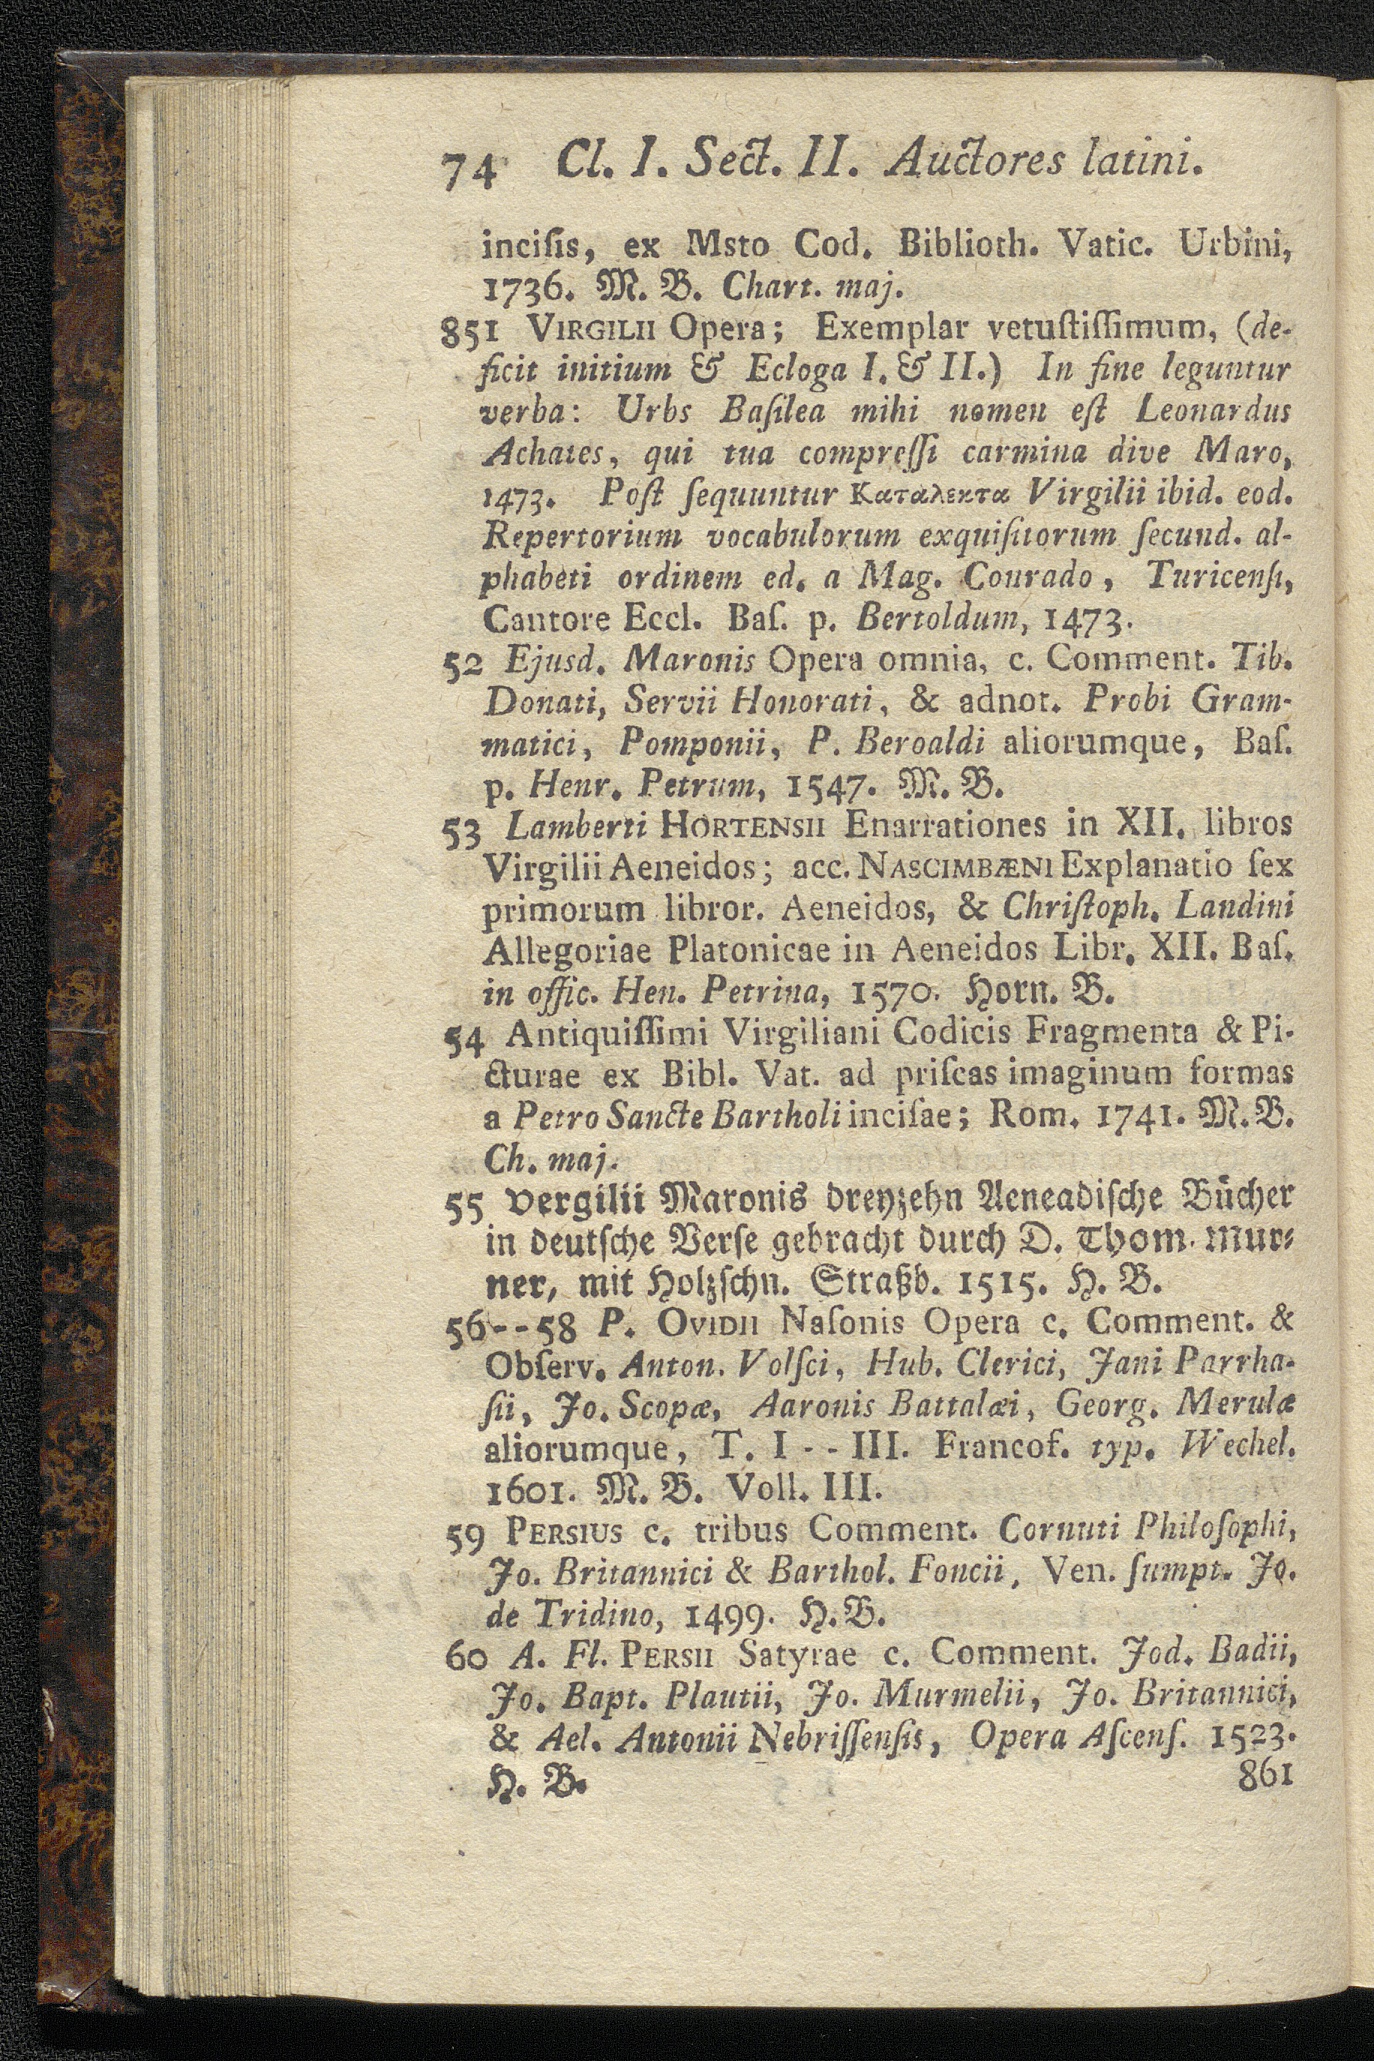 74 Cl. I. Sect. II. Auctores latini.
inciſis, ex Msto Cod. Biblioth. Vatic. Urbini,
1736. M. B. Chart. maj.
851 VIRGILII Opera; Exemplar vetuſtiſſimum, (de-
ficit initium & Ecloga I. & II.) In fine leguntur
verba: Urbs Baſilea mihi nomen eſt Leonardus
Achates, qui tua compreſſi carmina dive Maro,
1473. Poſt ſequuntur Καταλεκτα Virgilii ibid. eod.
Repertorium vocabulorum exquiſitorum ſecund. al-
phabeti ordinem ed. a Mag. Conrado, Turicenſi,
Cantore Eccl. Baſ. p. Bertoldum, 1473.
52 Ejusd. Maronis Opera omnia, c. Comment. Tib.
Donati, Servii Honorati, & adnot. Probi Gram-
matici, Pomponii, P. Beroaldi aliorumque, Baſ.
p. Henr. Petrum, 1547. M. B.
53 Lamberti HORTENSII Enarrationes in XII. libros
Virgilii Aeneidos; acc. NASCIMBÆNI Explanatio ſex
primorum libror. Aeneidos, & Chriſtoph. Landini
Allegoriae Platonicae in Aeneidos Libr. XII. Baſ.
in offic. Hen. Petrina, 1570. Horn. B.
54 Antiquiſſimi Virgiliani Codicis Fragmenta & Pi-
cturae ex Bibl. Vat. ad priſcas imaginum formas
a Petro Sancte Bartholi inciſae; Rom. 1741. M. B.
Ch. maj.
55 Vergilii Maronis dreyzehn Aeneadiſche Bücher
in deutſche Verſe gebracht durch D. Thom. Mur-
ner, mit Holzſchn. Straßb. 1515. H. B.
56--58 P. OVIDII Naſonis Opera c. Comment. &
Obſerv. Anton. Volſci, Hub. Clerici, Jani Parrha-
ſii, Jo. Scopæ, Aaronis Battalæi, Georg. Merulæ
aliorumque, T. I -- III. Francof. typ. Wechel.
1601. M. B. Voll. III.
59 PERSIUS c. tribus Comment. Cornuti Philoſophi,
Jo. Britannici & Barthol. Foncii, Ven. ſumpt. Jo.
de Tridino, 1499. H. B.
60 A. Fl. PERSII Satyrae c. Comment. Jod. Badii,
Jo. Bapt. Plautii, Jo. Murmelii, Jo. Britannici,
& Ael. Antonii Nebriſſenſis, Opera Aſcenſ. 1523.
H. B.
861